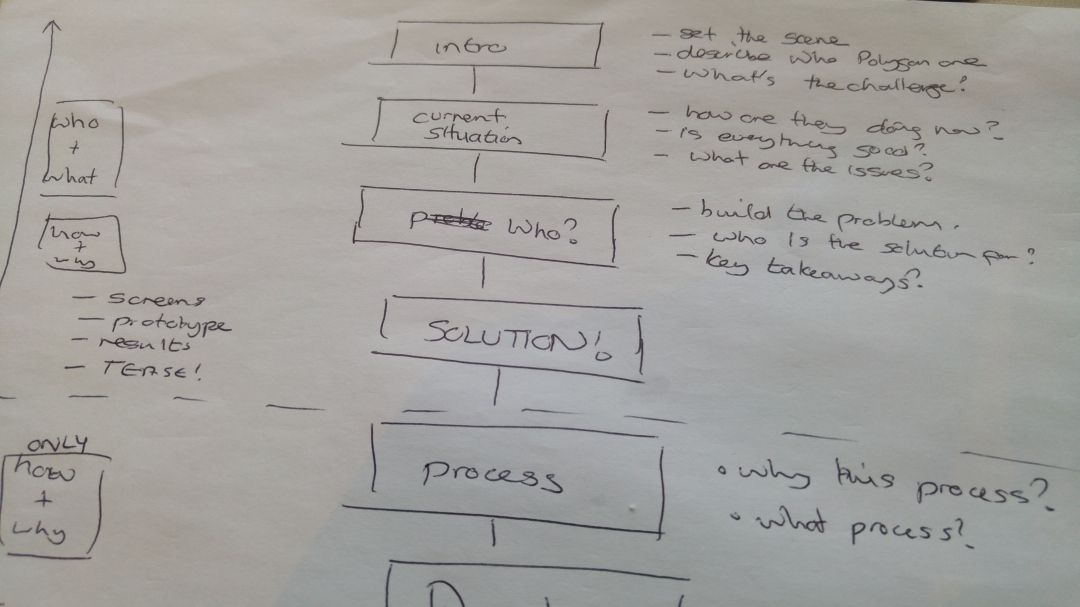 intro
- set the scene
- describe who Polygon are
- what's the challenge?
who
+
what
current
situation
- how are they doing now?
- is everything good?
- what are the issues?
how
+
why
Who?
- build the problem.
- who is the solution for?
- key takeaways?
- screens
- prototype
- results
- TEASE!
SOLUTION!
ONLY
how
+
why
process
• why this process?
• what process?